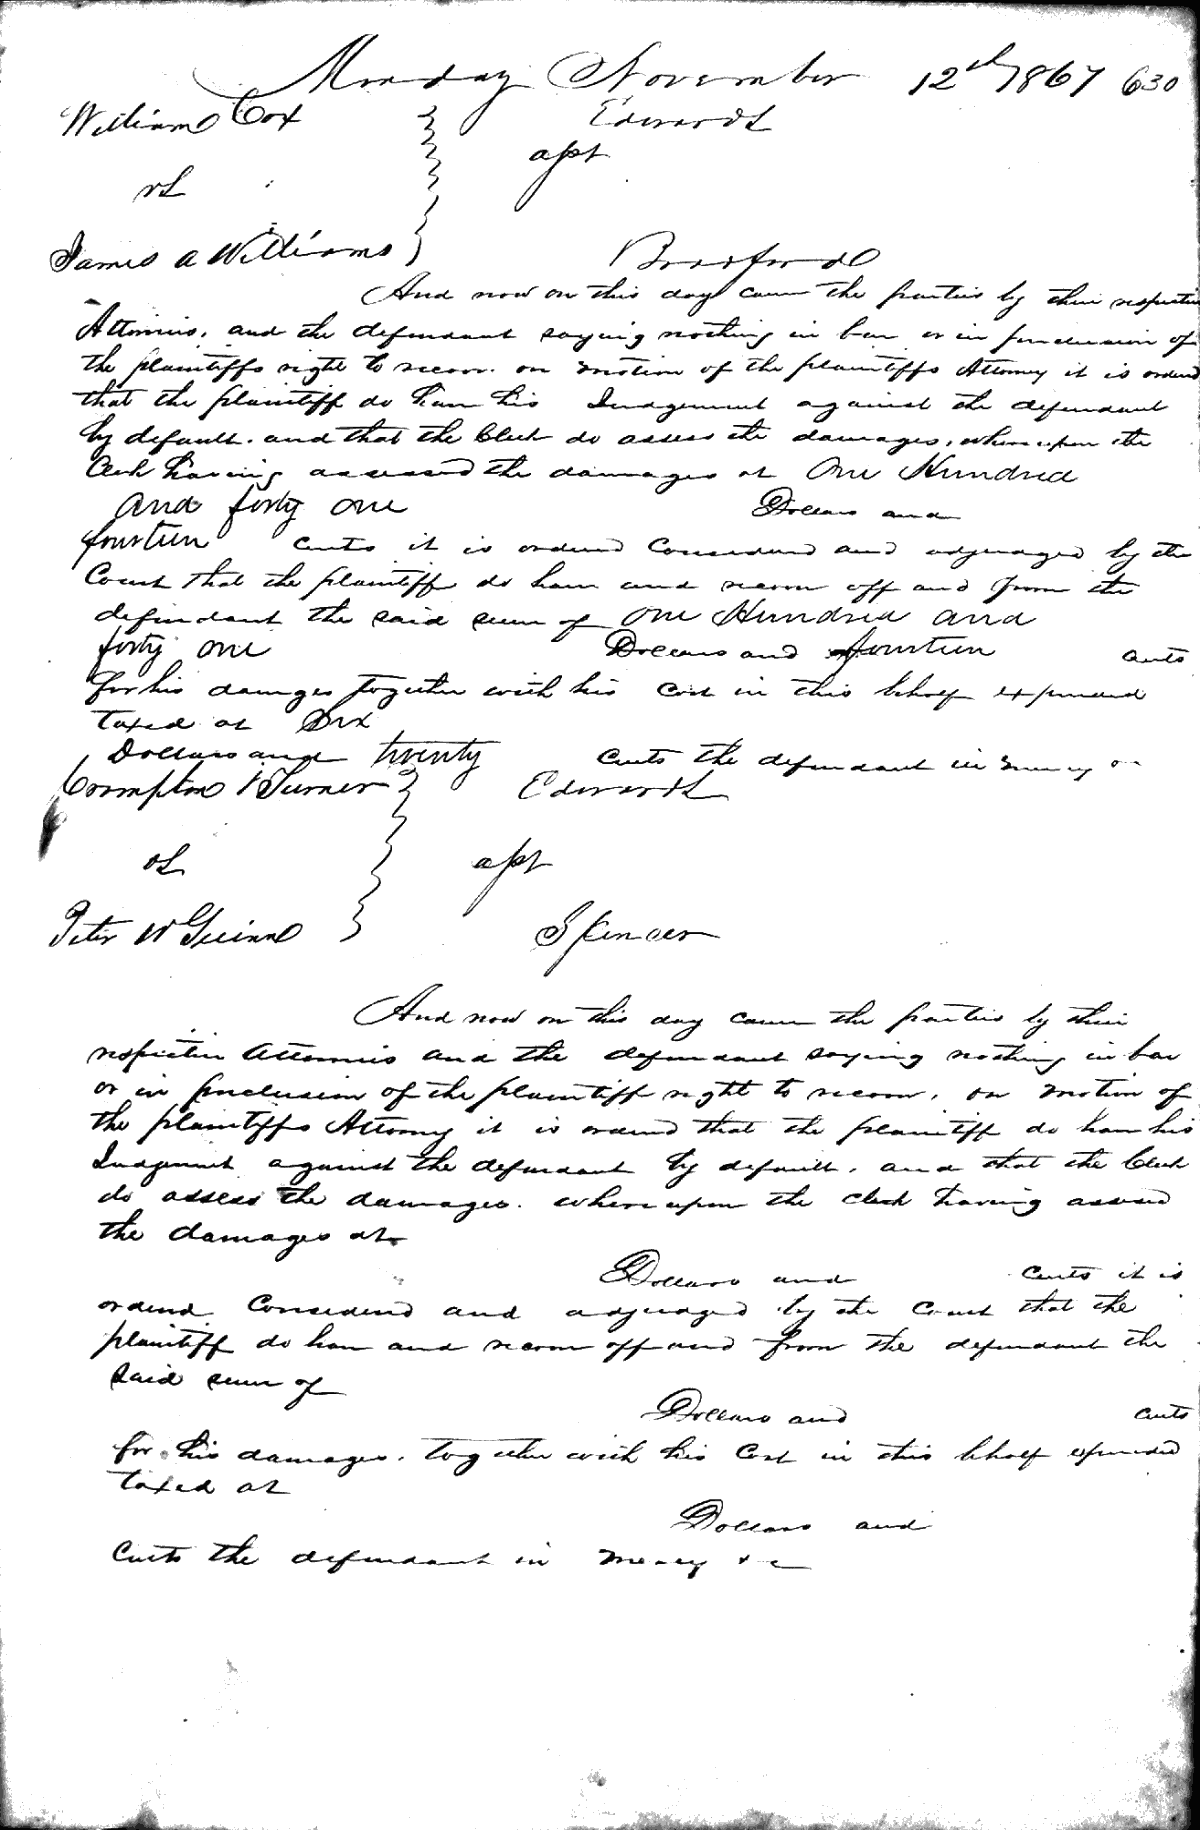 Monday November 12th 1867 630
William Cox Edwards
vs apt
James A Williams Bradford
And now on this day came the parties by their respective
Attornies, and the defendant saying nothing in bar or in preclusion of
the plaintiffs right to recover. on motion of the plaintiffs Attorney it is ordered
that the plaintiff do have his Judgement against the defendant
by default. and that the Clerk do assess the damages, whereupon the
Clerk having assessed the damages at One Hundred
and forty one Dollars and
fourteen cents it is ordered Considered and adjudged by the
Court that the plaintiff do have and recover off and from the
defendant the said sum of One Hundred and
forty one Dollars and fourteen cents
for his damages together with his Cost in this behalf expended
taxed at Six
Dollars and twenty cents the defendant in mercy
Crompton Turner Edwards
vs apt
Peter Spencer
And now on this day came the parties by their
respective Attornies and the defendant saying nothing in bar
or in preclusion of the plaintiff right to recover, on motion of
the plaintiffs Attorney it is ordered that the plaintiff do have his
Judgement against the defendant by default. and that the Clerk
do assess the damages. whereupon the clerk having assessed
the damages at
Dollars and cents it is
ordered Considered and adjudged by the Court that the
plaintiff do have and recover off and from the defendant the
said sum of
Dollars and cents
for his damages, together with his Cost in this behalf expended
taxed at
Dollars and
Cents the defendant in mercy &c